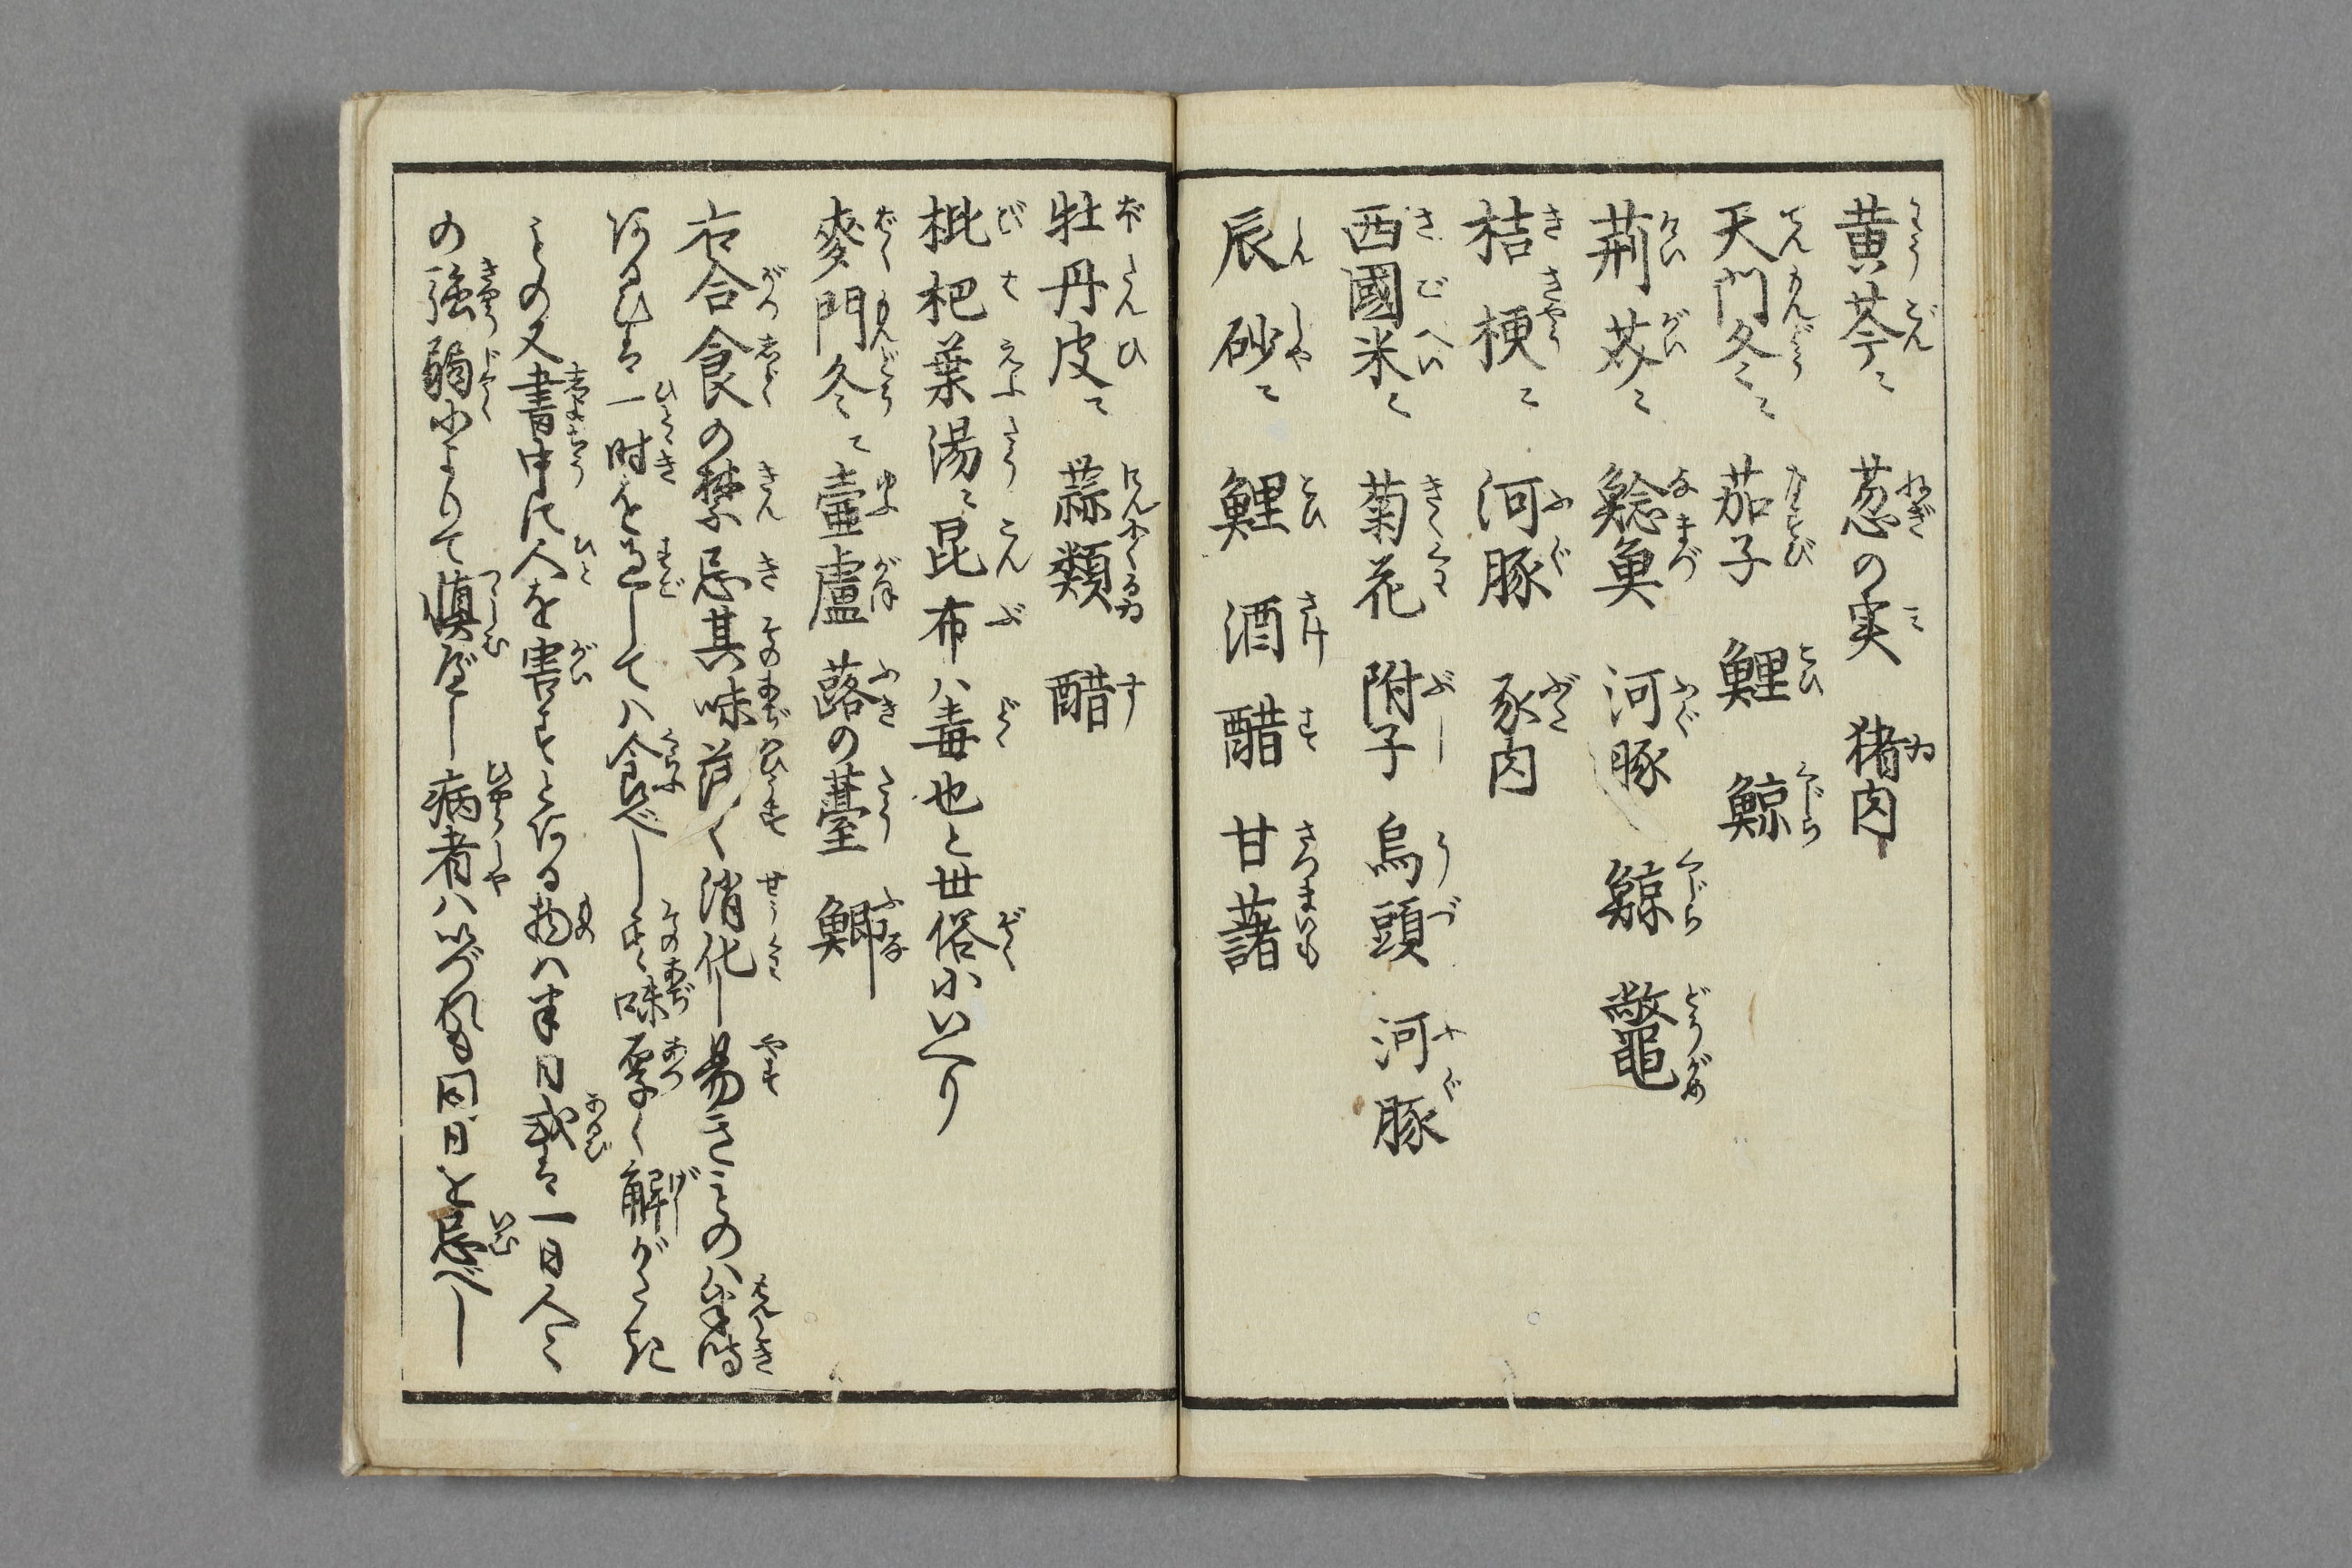 黄芩ニ 葱の実 猪肉
天門冬ニ 茄子 鯉 鯨
荊芥ニ 鯰魚 河豚 鯨 鼈
桔梗ニ 河豚 豕肉
西國米ニ 菊花 附子 烏頭 河豚
辰砂ニ 鯉 酒 醋 甘藷
牡丹皮ニ 蒜類 醋
枇杷葉湯ニ 昆布ハ毒也と世俗にいへり
麥門冬ニ 壷盧 蕗の薹 鯽
右合食の禁忌其味淡く消化し易きものハ半時
或ひは一時を過して八食べし其味厚く解がたき
もの又書中に人を害すとある物ハ半日或は一日人々
の強弱によりて慎べし病者ハいづれも同日を忌べし